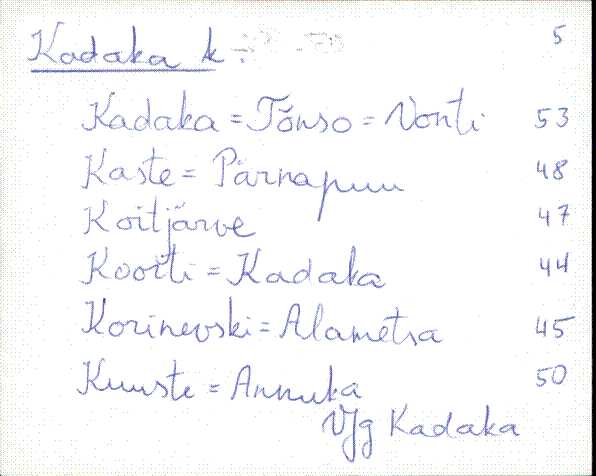 Kadaka k. 5
Kadaka = Tõnso = Nonti 53
Kaste = Pärnapuu 48
Koitjärve 47
Koorti = Kadaka 44
Korinevski = Alametsa 45
Kuuste = Annuka 50
Vjg Kadaka